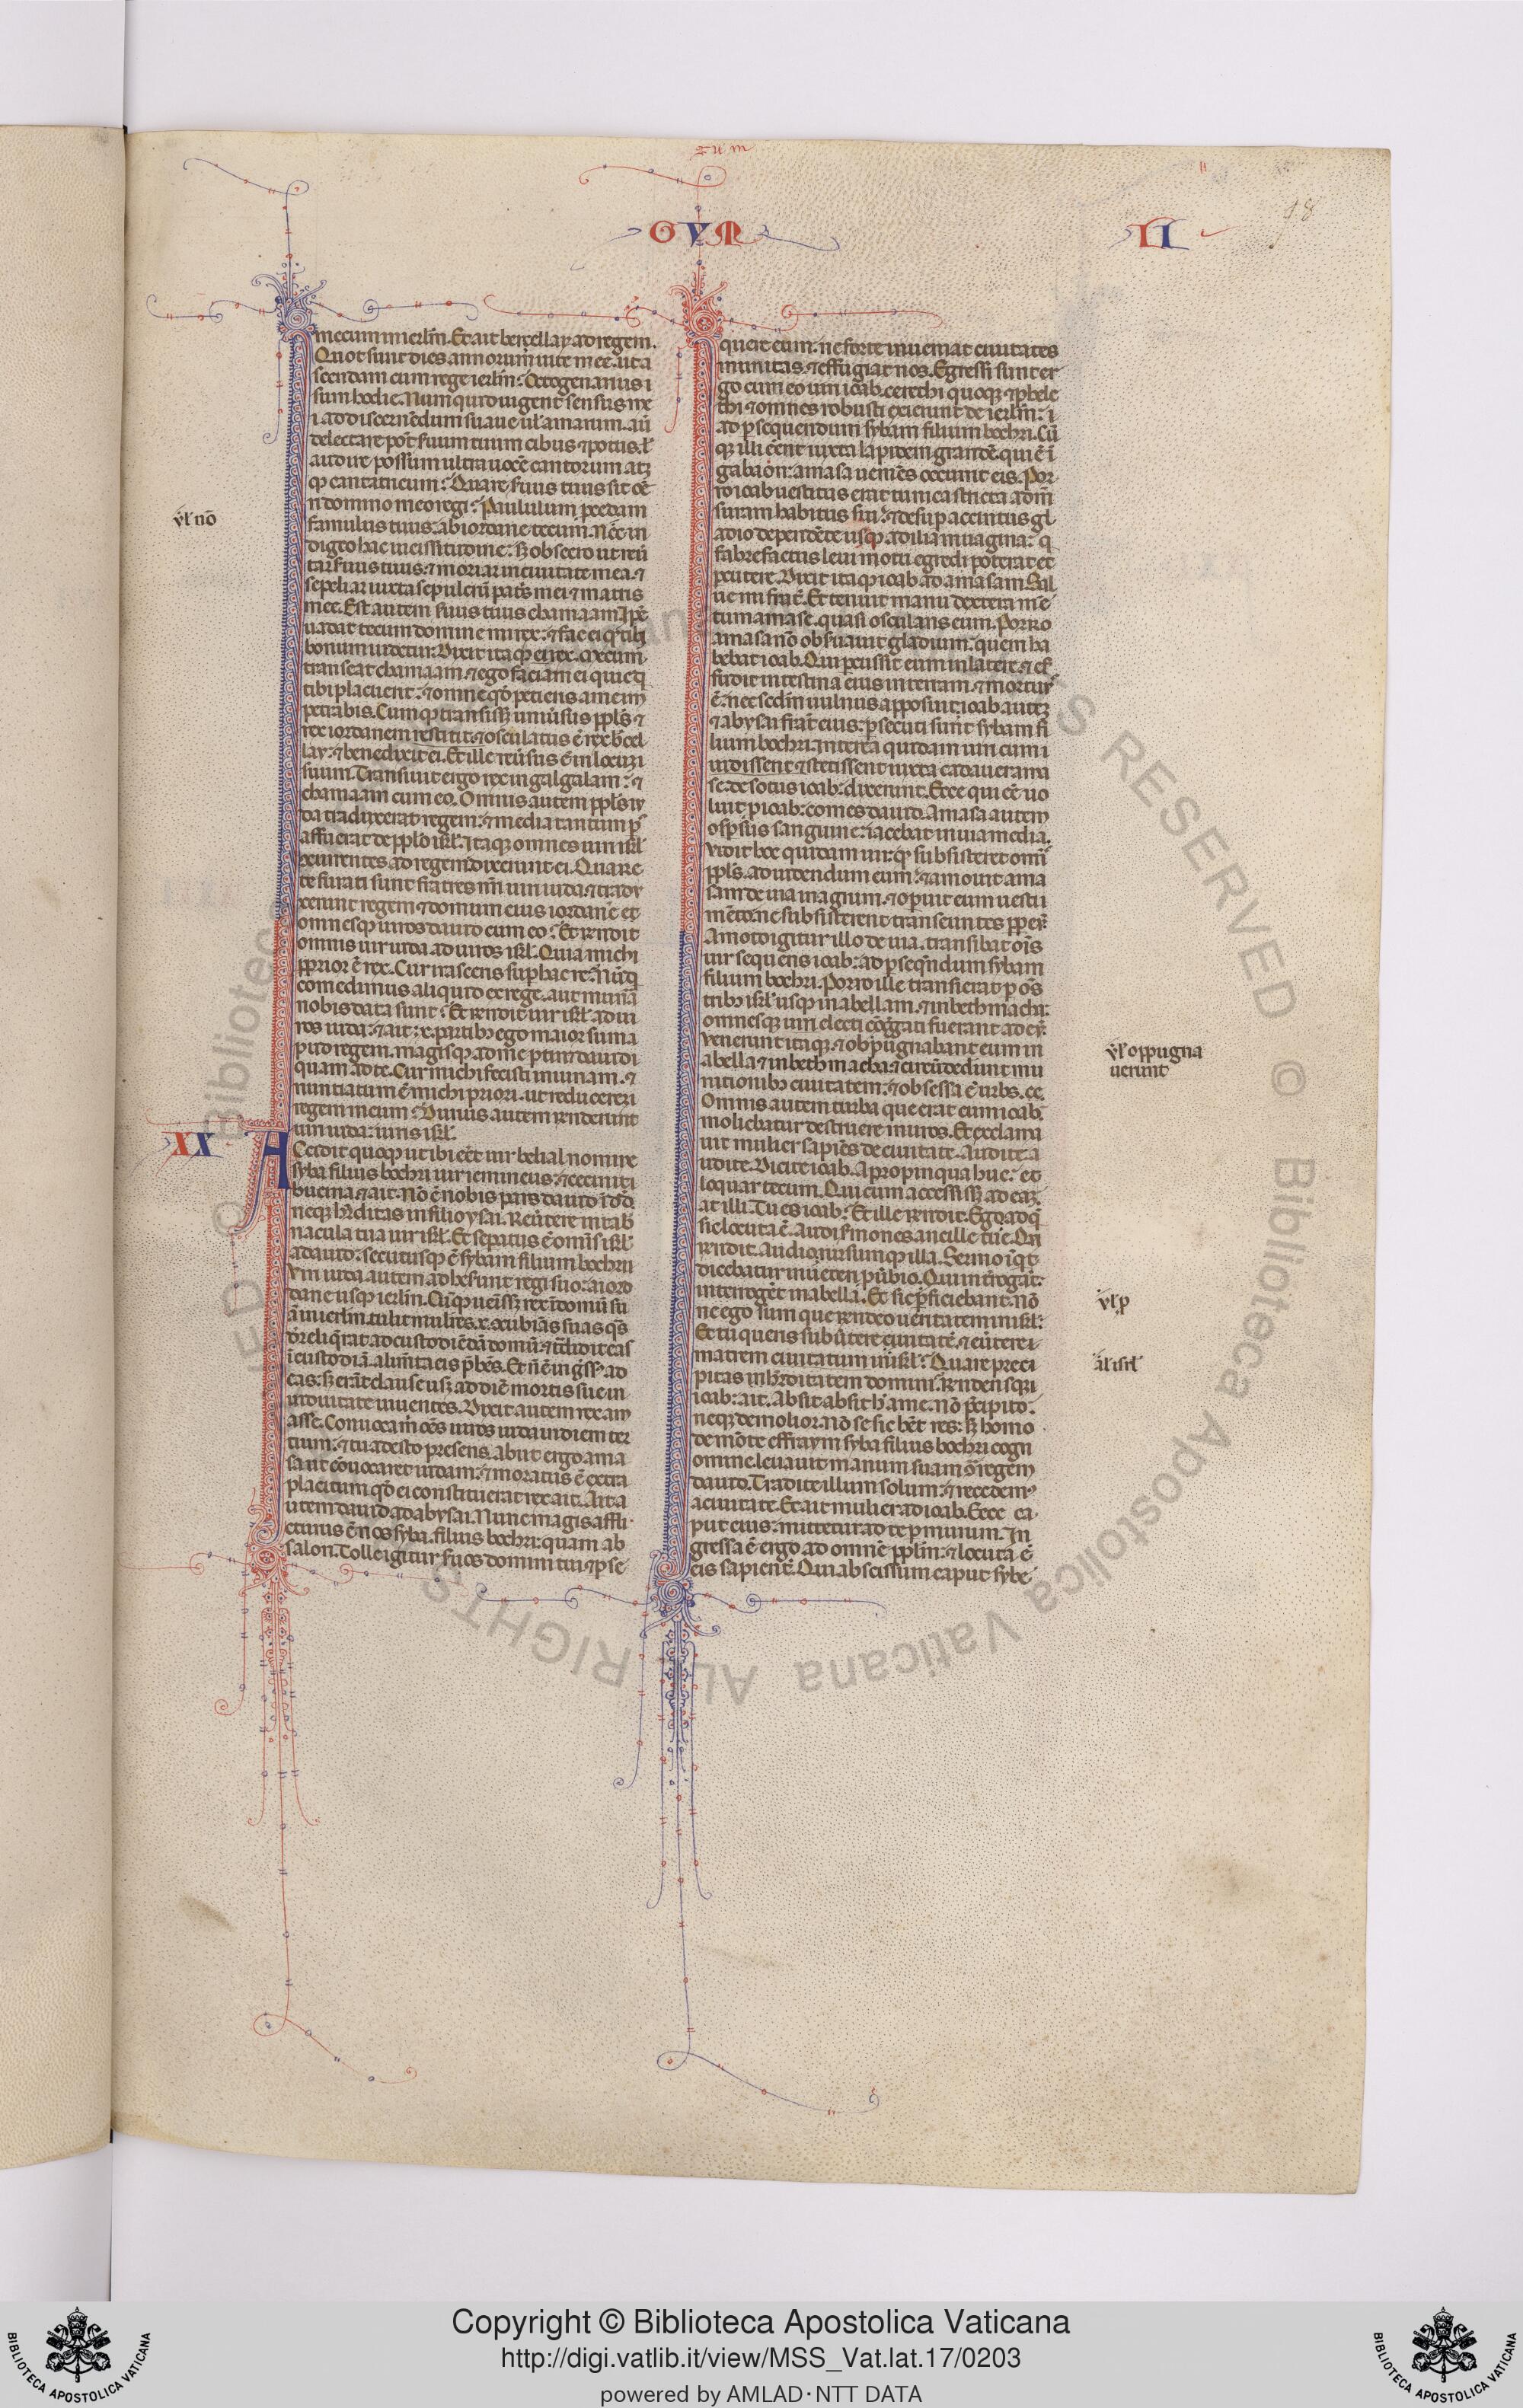 GUM
II
98
mecum in ierlm̄. Et ait berçellay ad regem.
Quot sunt dies annorum uite mee. ut a
scendam cum rege ierlm̄. Octogenarius
sum hodie. Num quid uigent sensus
ad discernēdum suaue ul̓ amarum. aū
delectare pōt seruum tuum cibus ⁊ potus. l̓
audire possum ultra uocē cantorum atqȝ
cantatricum. Quare seruus tuus sit
domino meo regi. Paululum procedam
famulus tuus: ab iordane tecum. Nō ē in
digeo hac uicissitudine: sȝ obsecro ut
seruus tuus: ⁊ moriar in ciuitate mea. ⁊
sepeliar iuxta sepulcrū patris mei ⁊ matris
mee. Est autem seruus tuus chamaam. Ip̄e
uadat tecum domine mi rex: ⁊ fac ei q̓ tibi
bonum uidetur. Dixit itaqȝ ei rex. Mecum
transeat chamaam. ⁊ ego faciam ei quicq̄
tibi placuerit: ⁊ omne qd̓ petieris a me im
petrabis. Cumqȝ transissȝ uniūsus ppl̓s ⁊
rex iordanem restitit: ⁊ osculatus ē rex
lay: ⁊ benedixit ei. Et ille reūsus ē in locum
suum. Transiuit ergo rex in galgalam: ⁊
chamaam cum eo. Omnis autem ppl̓s iu
da traduxerat regem: ⁊ media tantum ps̄
affuerat de pplo isrl̓. Itaqȝ omnes uiri isrl̓
currentes ad regem dixerunt ei. Quare
te furati sunt fratres nr̄i uiri iuda. ⁊ tradu
xerunt regem ⁊ domum eius iordanē
omnesqȝ uiros dauid cum eo. Et respondit
omnis uir iuda. ad uiros isrl̓. Quia michi
pprior ē rex. Cur irasceris sup hac re. Nūq̄
comedimus aliquid ex rege. aut munā
nobis data sunt. Et rn̄dit uir isrl̓ ad ui
ros iuda: ⁊ ait: x. partibȝ ego maior sum a
pud regem. magisqȝ ad me ptinet dauid
quam ad te. Cur michi fecisti iniuriam. ⁊
nuntiatum ē michi priori. ut reducerem
regem meum. Durius autem rn̄derunt
uiri iuda: uiris isrl̓.
XX
Accidit quoqȝ ut ibi eēt uir belial nomine
syba filius bochri uir iemineus: ⁊ cecinit
bucina. ⁊ ait. Nō ē nobis pars dauid
neqȝ hr̄editas in filio ysai. Reūtere in tab
nacula tua uir isrl̓. Et sepatus ē omīs isrl̓
a dauid: secutusqȝ ē sybam filium bochri
Viri iuda autem adheserunt regi suo: a iord
dane usqȝ ierlm̄. Cūqȝ ueīssȝ rex ī domū su
ā in ierlm̄. tulit mulieres. x. ɔcubinas suas
dereliq̄rat ad custodiēdā domū: ⁊ tradidit eas
ī custodiā. alimta eis p̄bens. Et nō ē īgrssꝰ ad
eas: sȝ erāt clause usqȝ ad diē mortis sue in
uiduitate uiuentes. Dixit autem rex am
asse. Conuoca michi oēs uiros iuda in diem ter
tium: ⁊ tu adesto presens. abiit ergo ama
sa ut cōuocaret iudam: ⁊ moratus ē extra
placitum qd̓ ei constituerat rex. ait. Ait a
utem dauid ad abysai. Nunc magis affli
cturus ē nos syba. filius bochri: quam ab
salon. Tolle igitur seruos domini tui. ⁊ pse
vl̓ nō
quere eum: ne forte inueniat ciuitates
munitas. ⁊ effugiat nos. Egressi sunt er
go cum eo uiri ioab. cerethi quoqȝ ⁊ phele
thi ⁊ omnes robusti exierunt de ierlm̄:
ad psequendum sybam filium bochri. Cū
qȝ illi eēnt iuxta lapidem grandē. qui ē ī
gabaon: amasa ueniēs occurrit eis. Por
ro ioab uestitus erat tunica stricta ad m̄
suram habitus sui: ⁊ desup accinctus gl
adio dependēte usqȝ ad ilia in uagina: q
fabrefactus leui motu egredi poterat et
pcutere. Dixit itaqȝ ioab ad amasam Sal
ue mi frat̄. Et tenuit manu dextera mē
tum amase. quasi osculans eum. Porro
amasa nō obseruauit gladium: quem ha
bebat ioab. Qui pcussit eum in latere. ⁊ ef
fudit intestina eius in terram. ⁊ mortuꝰ
ē: nec secdm̄ uulnus apposuit: ioab autē
⁊ abysai frat̄ eius: psecuti sunt sybam fi
lium bochri. Interea quidam uiri cum
uidissent ⁊ stetissent iuxta cadauer ama
se: de sociis ioab: dixerunt. Ecce qui eēt uo
luit p ioab: comes dauid. Amasa autem
ospsus sanguine: iacebat in uia media.
Vidit hoc quidam uir: qd̓ subsisteret omīs
ppl̓s. ad uidendum eum: ⁊ amouit ama
sam de uia in agrum. ⁊ opuit eum uesti
mēto: ne subsisterent transeuntes pp eū.
Amoto igitur illo de uia. transibat oīs
uir sequens ioab: ad pseqndum sybam
filium bochri. Porro ille transierat p oēs
tribȝ isrl̓ usqȝ in abellam. ⁊ in bethmacha:
omnesqȝ uiri electi cōgregati fuerant ad eū.
Venerunt itaqȝ: ⁊ obpugnabant eum in
abella ⁊ in bethmacha: ⁊ circūdederunt mu
nitionibȝ ciuitatem: ⁊ obsessa ē urbs.
Omnis autem turba que erat cum ioab
moliebatur destruere muros. Et exclama
uit mulier sapiēs de ciuitate. Audite a
udite. Dicite ioab. Appropinqua huc: et
loquar tecum. Qui cum accessissȝ ad eam:
ait illi. Tu es ioab. Et ille rn̄dit. Ego. ad q̄
sic locuta ē. Audi sermones ancille tue. Qui
rn̄dit. Audio. Rursumqȝ illa. Sermo īqt
dicebatur in ueteri puerbio. Qui interrogāt:
interrogēt in abella. Et sic pficiebant. nō
ne ego sum que rn̄deo ueritatem in isrl̓:
Et tu queris subūtere ciuitatē. ⁊ eūtere
matrem ciuitatum in isrl̓. Quare preci
pitas hr̄editatem domini. Rn̄densqȝ
ioab: ait. Absit absit h̄ a me. nō p̄cipito:
neqȝ demolior. nō se sic het res: sȝ homo
de mōte effraym syba filius bochri cogn
omine. leuauit manum suam ɔ̄ regem
dauid. Tradite illum solum: ⁊ recedemꝰ
a ciuitate. Et ait mulier ad ioab. Ecce ca
put eius: mittetur ad te p murum. In
gressa ē ergo ad omnē pplm̄: ⁊ locuta ē
eis sapient̄. Qui abscissum caput sybe
vl̓ oppugna
uerunt
vl̓ p
al̓ isrl̓
© Biblioteca Apostolica Vaticana ALL RIGHTS RESERVED
Copyright © Biblioteca Apostolica Vaticana
http://digi.vatlib.it/view/MSS_Vat.lat.17/0203
powered by AMLAD·NTT DATA
BIBLIOTECA APOSTOLICA VATICANA
BIBLIOTECA APOSTOLICA VATICANA